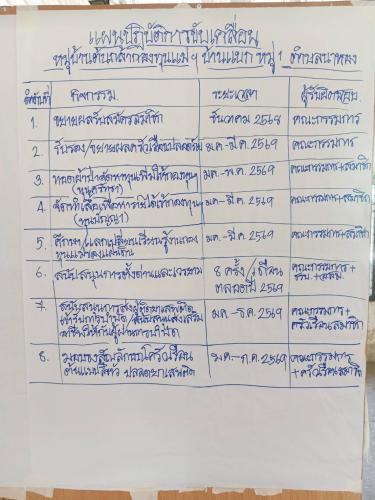 แผนปฏิบัติการขับเคลื่อน
หมู่บ้านต้นกล้ากองทุนแม่ฯ บ้านแบก หมู่ 1 ตำบลนาทอง
ลำดับที่ กิจกรรม ระยะเวลา ผู้รับผิดชอบ
1. ขยายผลรับสมัครสมาชิก ธันวาคม 2568 คณะกรรมการ
2. รับรอง/ขยายผลครัวเรือนปลอดภัย ม.ค.-มี.ค. 2569 คณะกรรมการ
3. ทอดผ้าป่าจัดหาทุนเพิ่มให้กองทุนฯ ม.ค.-พ.ค. 2569 คณะกรรมการ+สมาชิก
(ทุนศรัทธา)
4. จัดทำเสื้อเพื่อหารายได้เข้ากองทุน ม.ค.-มี.ค. 2569 คณะกรรมการ+สมาชิก
(ทุนปัญญา)
5. ศึกษาแลกเปลี่ยนเรียนรู้งานกอง ม.ค.-มี.ค. 2569 คณะกรรมการ+สมาชิก
ทุนแม่ของแผ่นดิน
6. สนับสนุนการตั้งด่านและเวรยาม 8 ครั้ง/เดือน คณะกรรมการ+
ตลอดปี 2569
7. สนับสนุนการส่งผู้ติดยาเสพติด ม.ค.-ธ.ค. 2569 คณะกรรมการ+
เข้ารับการบำบัด/สนับสนุนส่งเสริม ครัวเรือนสมาชิก
อาชีพให้กับผู้ผ่านการบำบัด
8. มอบธงสัญลักษณ์ครัวเรือน พ.ค.-ก.ค. 2569 คณะกรรมการ
ต้นแบบสีขาว ปลอดยาเสพติด +ครัวเรือนสมาชิก